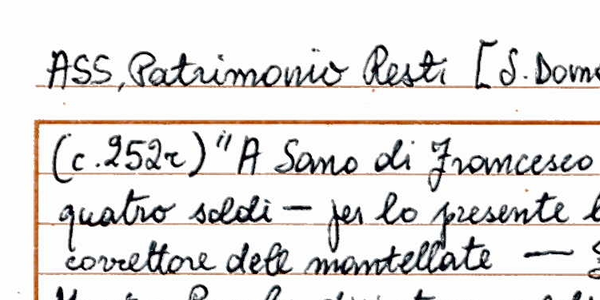 ASS, Patrimonio Resti [S. Dome
(c. 252r) "A Sano di Francesco
quatro soldi — per lo presente
correttore delle mantellate —